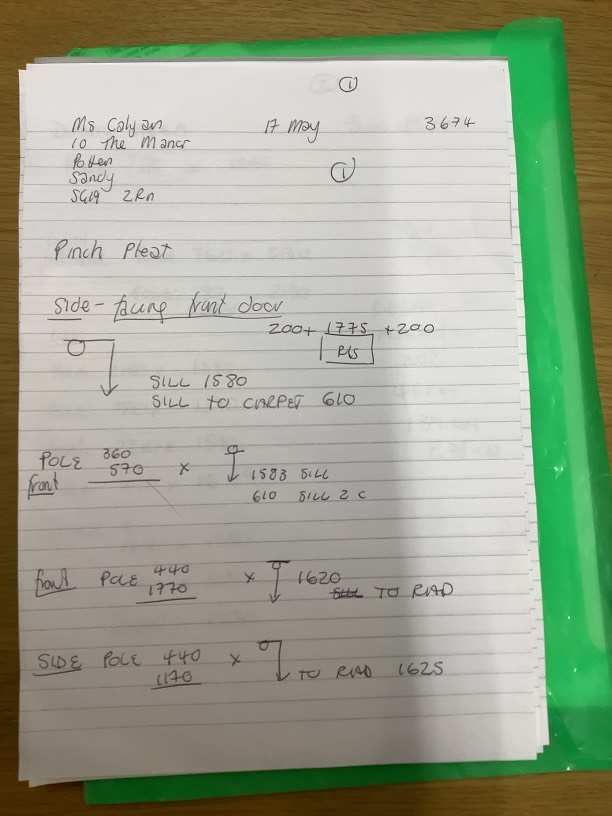 1
Ms Calyan 17 May 3674
10 The Manor
Potten
Sandy 1
SG19 2Rn
Pinch Pleat
Side - facing front door
200+ 1775 +200
SILL 1580
SILL TO CARPET 610
POLE 360
570 x 1583 SILL
front
610 SILL 2 C
front POLE 440 x 1620
1770 TO RAD
SIDE POLE 440 x
1170 TO RAD 1625